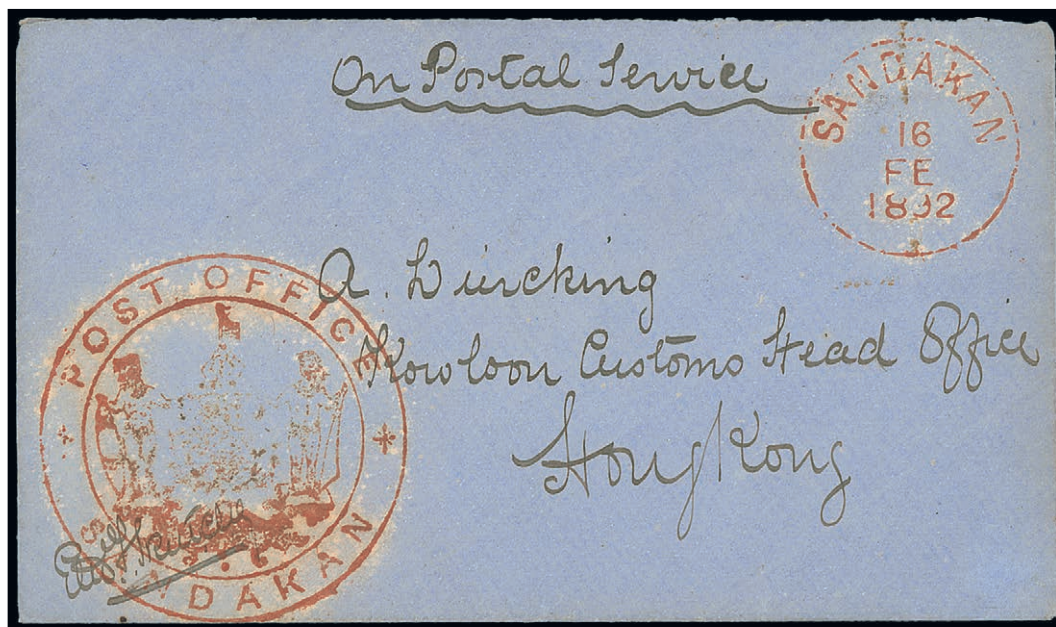 On Postal Service
SANDAKAN
16
FE
1892
A. Duncking
Kowloon Customs Head Office
Hong Kong
POST OFFICE
SANDAKAN